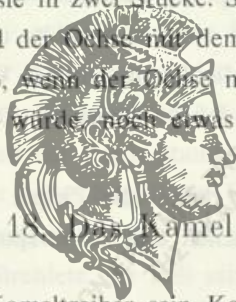 sie in zwei Stücke. S
der Ochse mit dem
wenn der Ochse n
würde, noch etwas
18. Das Kamel
Kameltreiber